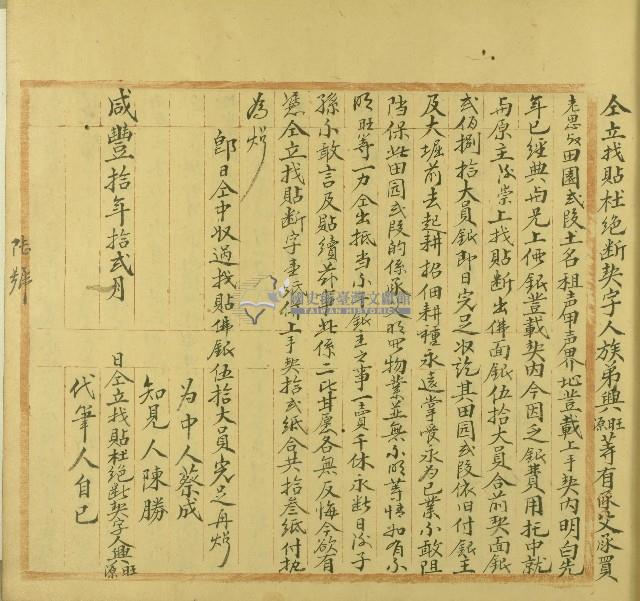 仝立找貼杜絕断契字人族弟興旺源等有承父承買
田園弍段土名祖声甲声界地豈載上手契內明白先
年已經典与兄上俥銀豈載契內今因乏銀費用托中就
与原主 崇上找貼断出佛面銀伍拾大員合前契面銀
弍佰捌拾大員銀即日完足收訖其田园弍段依旧付銀主
及大堀前去起耕招佃耕種永遠掌管永为己業不敢阻
擋保此田园弍段的係承父明買物業並無不明等情如有不
明旺等一力仝出抵当不干銀主之事一賣千休永断日後子
孫不敢言及貼續等事此係二比甘愿各無反悔今欲有
憑仝立找貼断字壹紙併上手契拾弍紙合共拾叁紙付执
為炤
即日仝中収過找貼佛銀伍拾大員完足再炤
为中人蔡成
知見人陳勝
代筆人自己
咸豐拾年拾弍月 日仝立找貼杜絕断契字人興旺源
國史館臺灣文獻館
TAIWAN HISTORICA